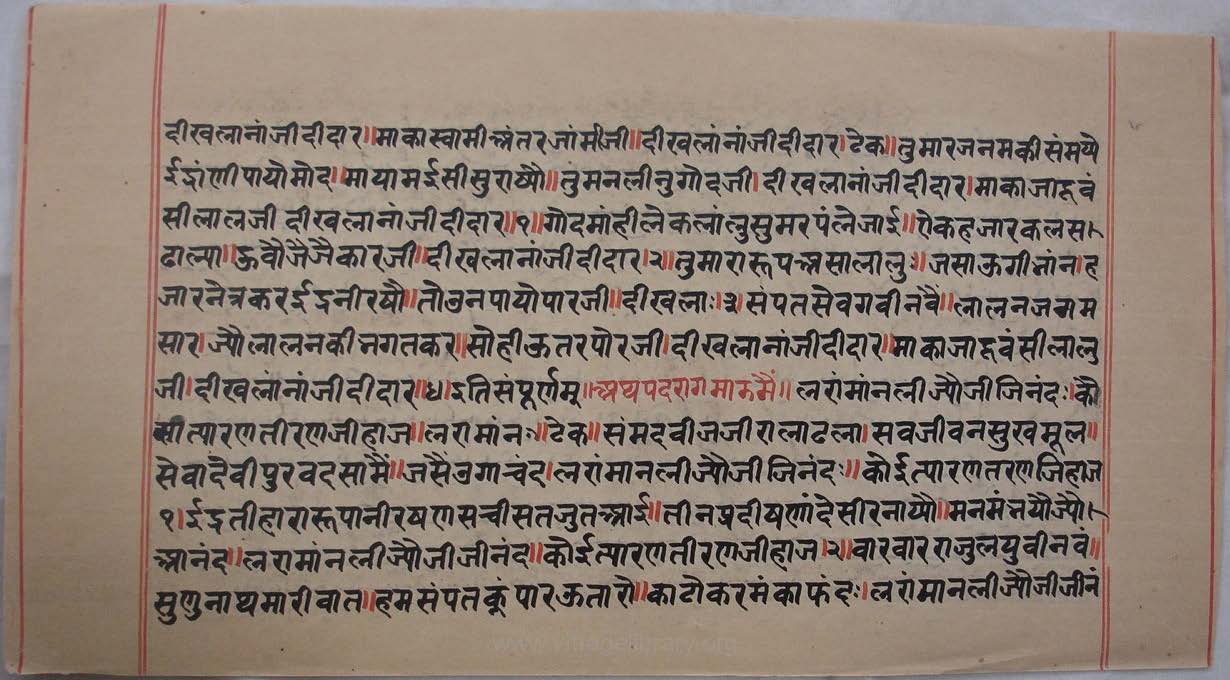 दीखलानांजीदीदार॥माकास्वामीअंतरजांमीजी॥दीखलांनांजीदीदार।टेक॥तुमारजनमकीसंमयौ
ईद्रांणीपायौमोद॥मायामईसीसुराष्यौ॥तुंमनलीनुगोदजी।दीखलानांजीदीदार।माकाजादूवं
सीलालजी दीखलानांजीदीदार॥१॥गोदमांहीलेकलांलुसुमरपंलेजाई॥रोकहजारकलस।
ढाल्या॥ऊवौजैजैकारजी॥दीखलानांजीदीदार।२॥तुमारारूपअसालालु॥जसाऊगीभांन।ह
जारनेत्रकरईद्रनीरष्यौ॥तोउनपायोपारजी॥दीखला॰।३।संपतसेवगवीनवै॥लालनजगम
सार।ज्यौलालनकीनगतकर॥सोहीऊतरपोरजी।दीखलानांजीदीदार॥माकाजादूवंसीलालु
जी।दीखलांनांजीदीदार॥४।इतिसंपूर्णम्॥अथपदरागमाऊमैं॥लरांमांनलीज्यौजीजिनंद॰।कौ
सीत्यारणतीरणजीहाज॥लरामांन॰॥टेक॥संमदवीजजीरालाढला।सवजीवनसुखमूल॥
सेवादेवीपुरवदसामैं॥जसैंउगाचंद।लरांमानलीज्यौजीजिनंद॰॥कोईत्यारणतरणजिहाज
१।ईद्रतीहारारूपानीरषणसचीसतजुतआई॥तीनप्रदीषणांदेसीरनाष्यौ॥मनमंनयौज्यौ।
आनंद॥लरामांनलीज्यौजीजीनंद॥कोईत्यारणतीरणजीहाज।२॥वारवारराजुलयुवीनवं॥
सुणुनाथमारीवात॥हमसंपतकूंपारऊतारौ॥काटोकरमंकाफंद॰।लरांमानलीज्यौजीजीनं